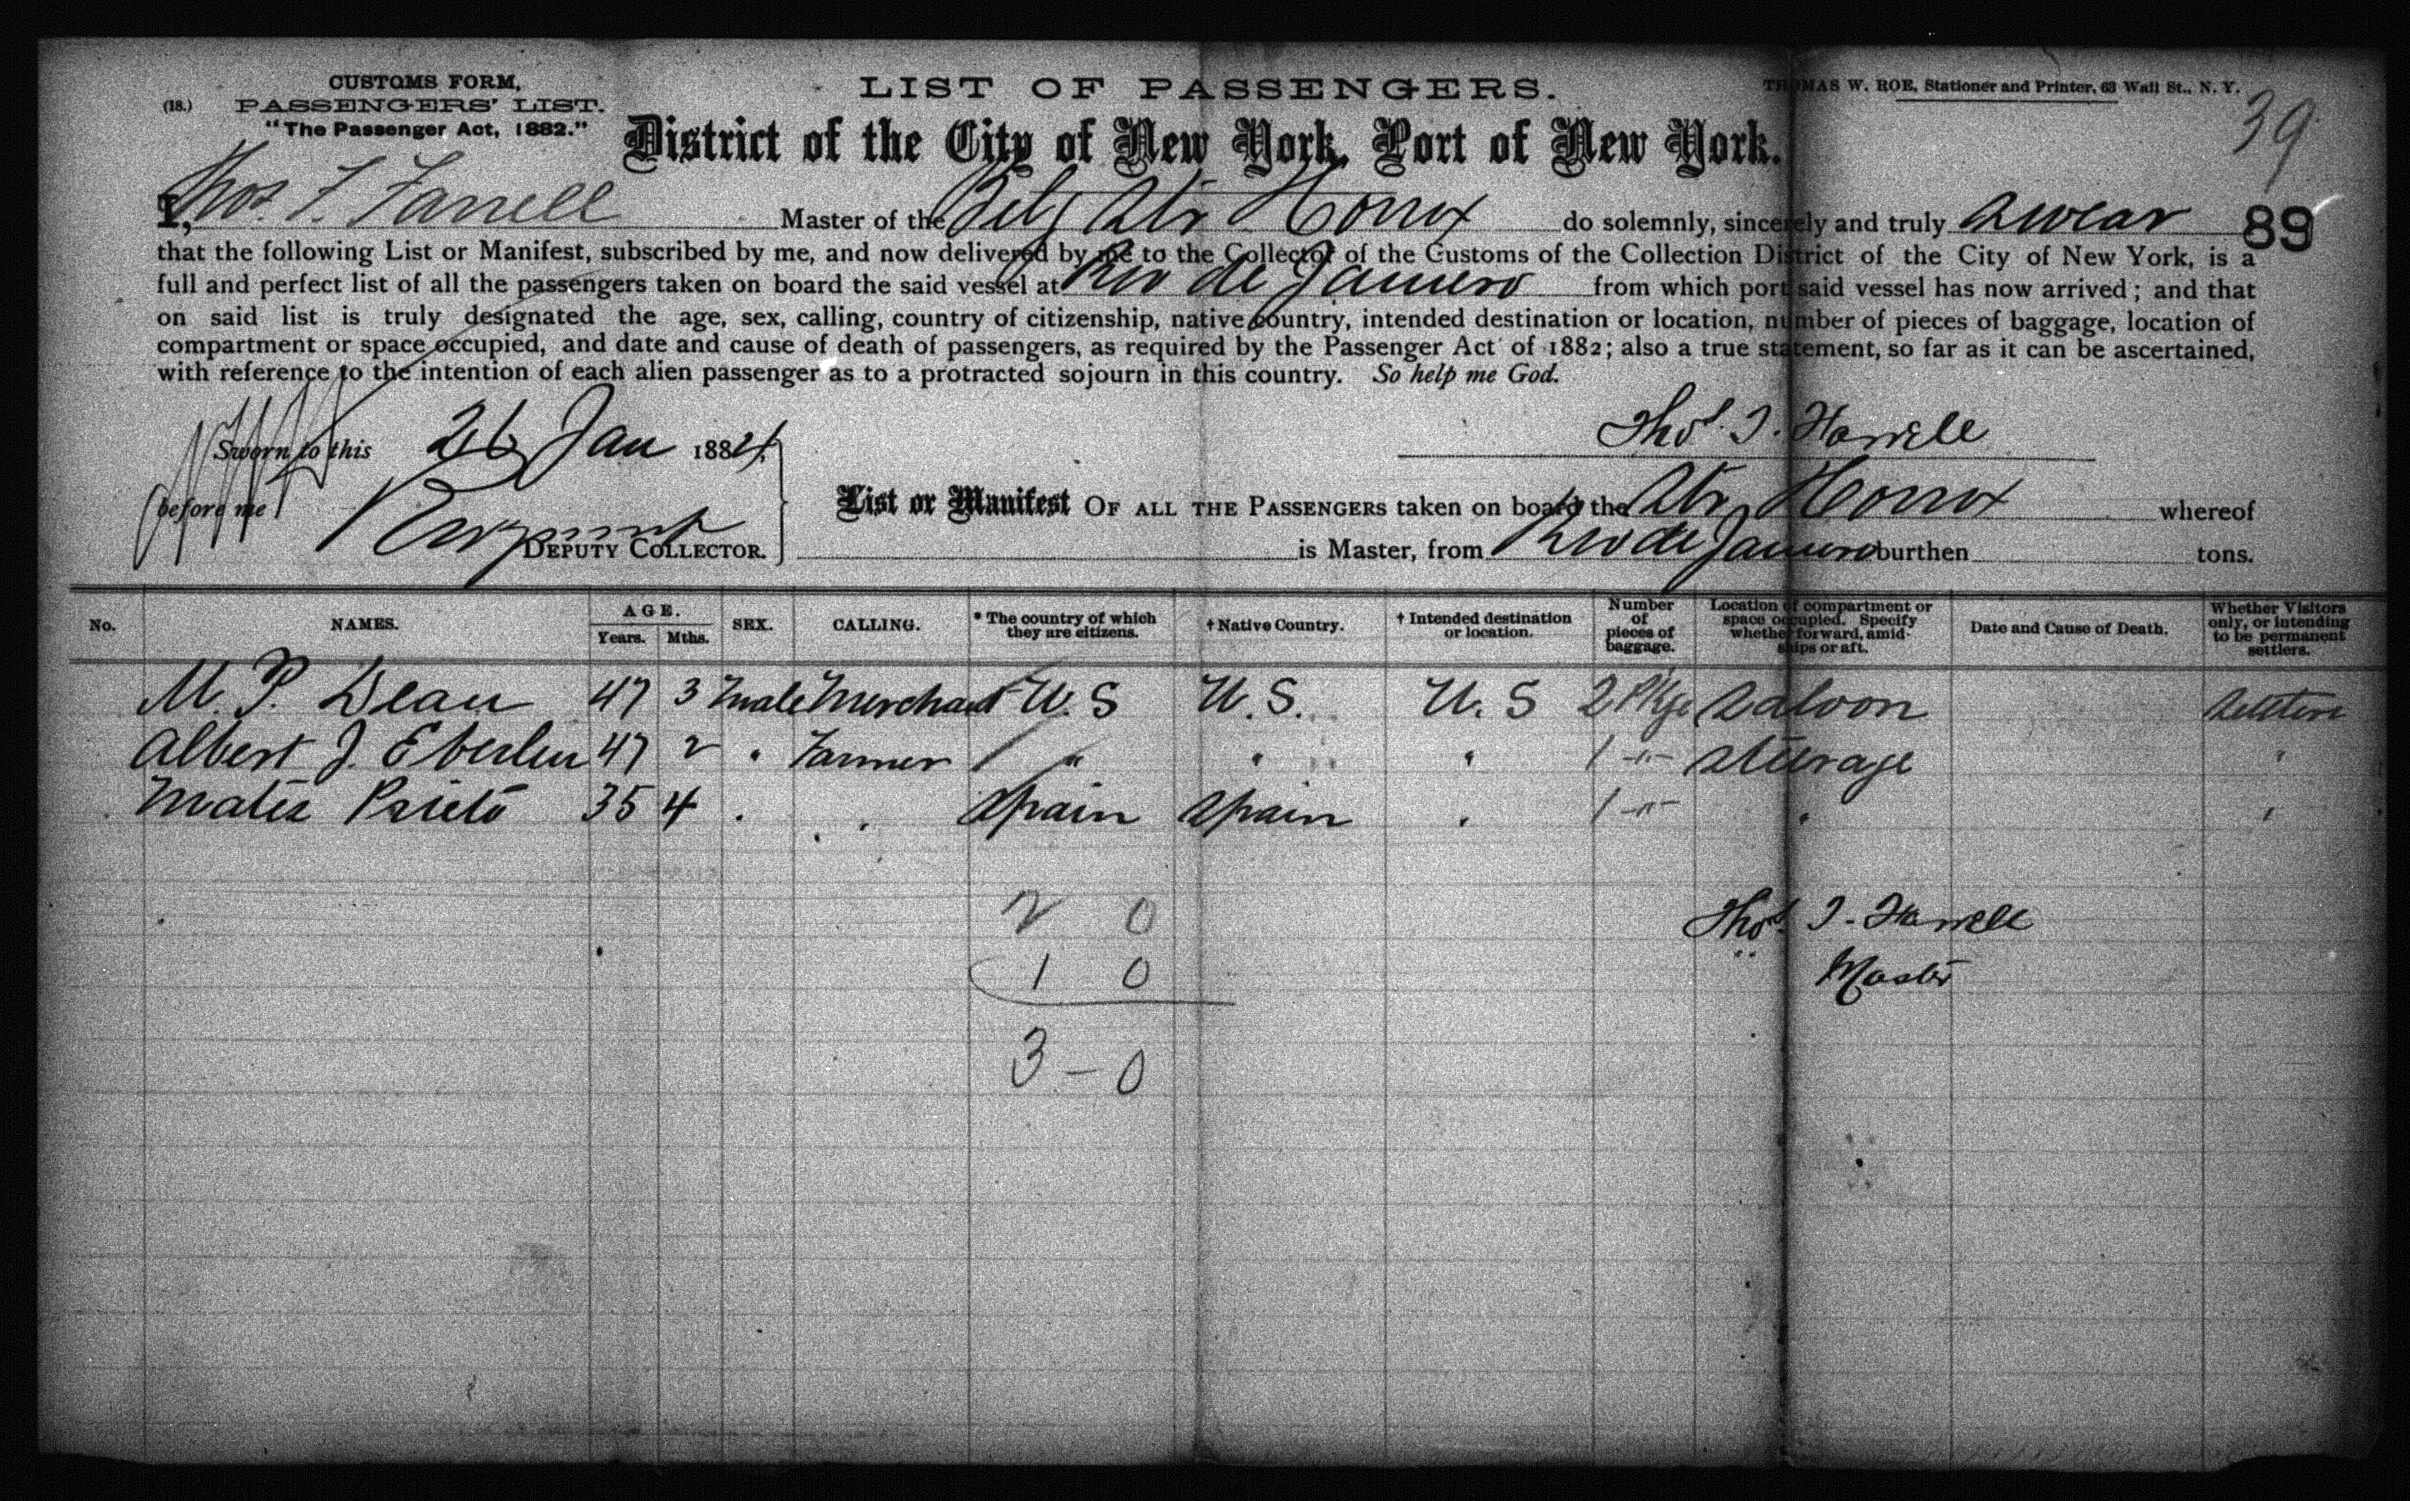 CUSTOMS FORM,
(18.) PASSENGERS' LIST.
"The Passenger Act, 1882."
LIST OF PASSENGERS.
THOMAS W. ROE, Stationer and Printer, 63 Wall St., N. Y.
39
District of the City of New York, Port of New York.
I, Thos. F. Farrell Master of the Belg Str Horrox do solemnly, sincerely and truly swear 89
that the following List or Manifest, subscribed by me, and now delivered by me to the Collector of the Customs of the Collection District of the City of New York, is a
full and perfect list of all the passengers taken on board the said vessel at Rio de Janeiro from which port said vessel has now arrived; and that
on said list is truly designated the age, sex, calling, country of citizenship, native country, intended destination or location, number of pieces of baggage, location of
compartment or space occupied, and date and cause of death of passengers, as required by the Passenger Act of 1882; also a true statement, so far as it can be ascertained,
with reference to the intention of each alien passenger as to a protracted sojourn in this country. So help me God.
Thos. F. Farrell
Sworn to this 26 Jan 1884,
before me
DEPUTY COLLECTOR.
List or Manifest OF ALL THE PASSENGERS taken on board the Str Horrox whereof
is Master, from Rio de Janeiro burthen tons.
No. NAMES. AGE. Years. Mths. SEX. CALLING. * The country of which they are citizens. † Native Country. † Intended destination or location. Number of pieces of baggage. Location of compartment or space occupied. Specify whether forward, amidships or aft. Date and Cause of Death. Whether Visitors only, or intending to be permanent settlers.
M. P. Dean 47 3 Male Merchant U.S U.S. U.S 2 Pkge Saloon Settlers
Albert J. Eberlen 47 2 " Farmer " " " 1 -"- Steerage "
Mates Prieto 35 4 " " Spain Spain " 1 -"- " "
2 0
1 0
3 - 0
Thos. F. Farrell
Master